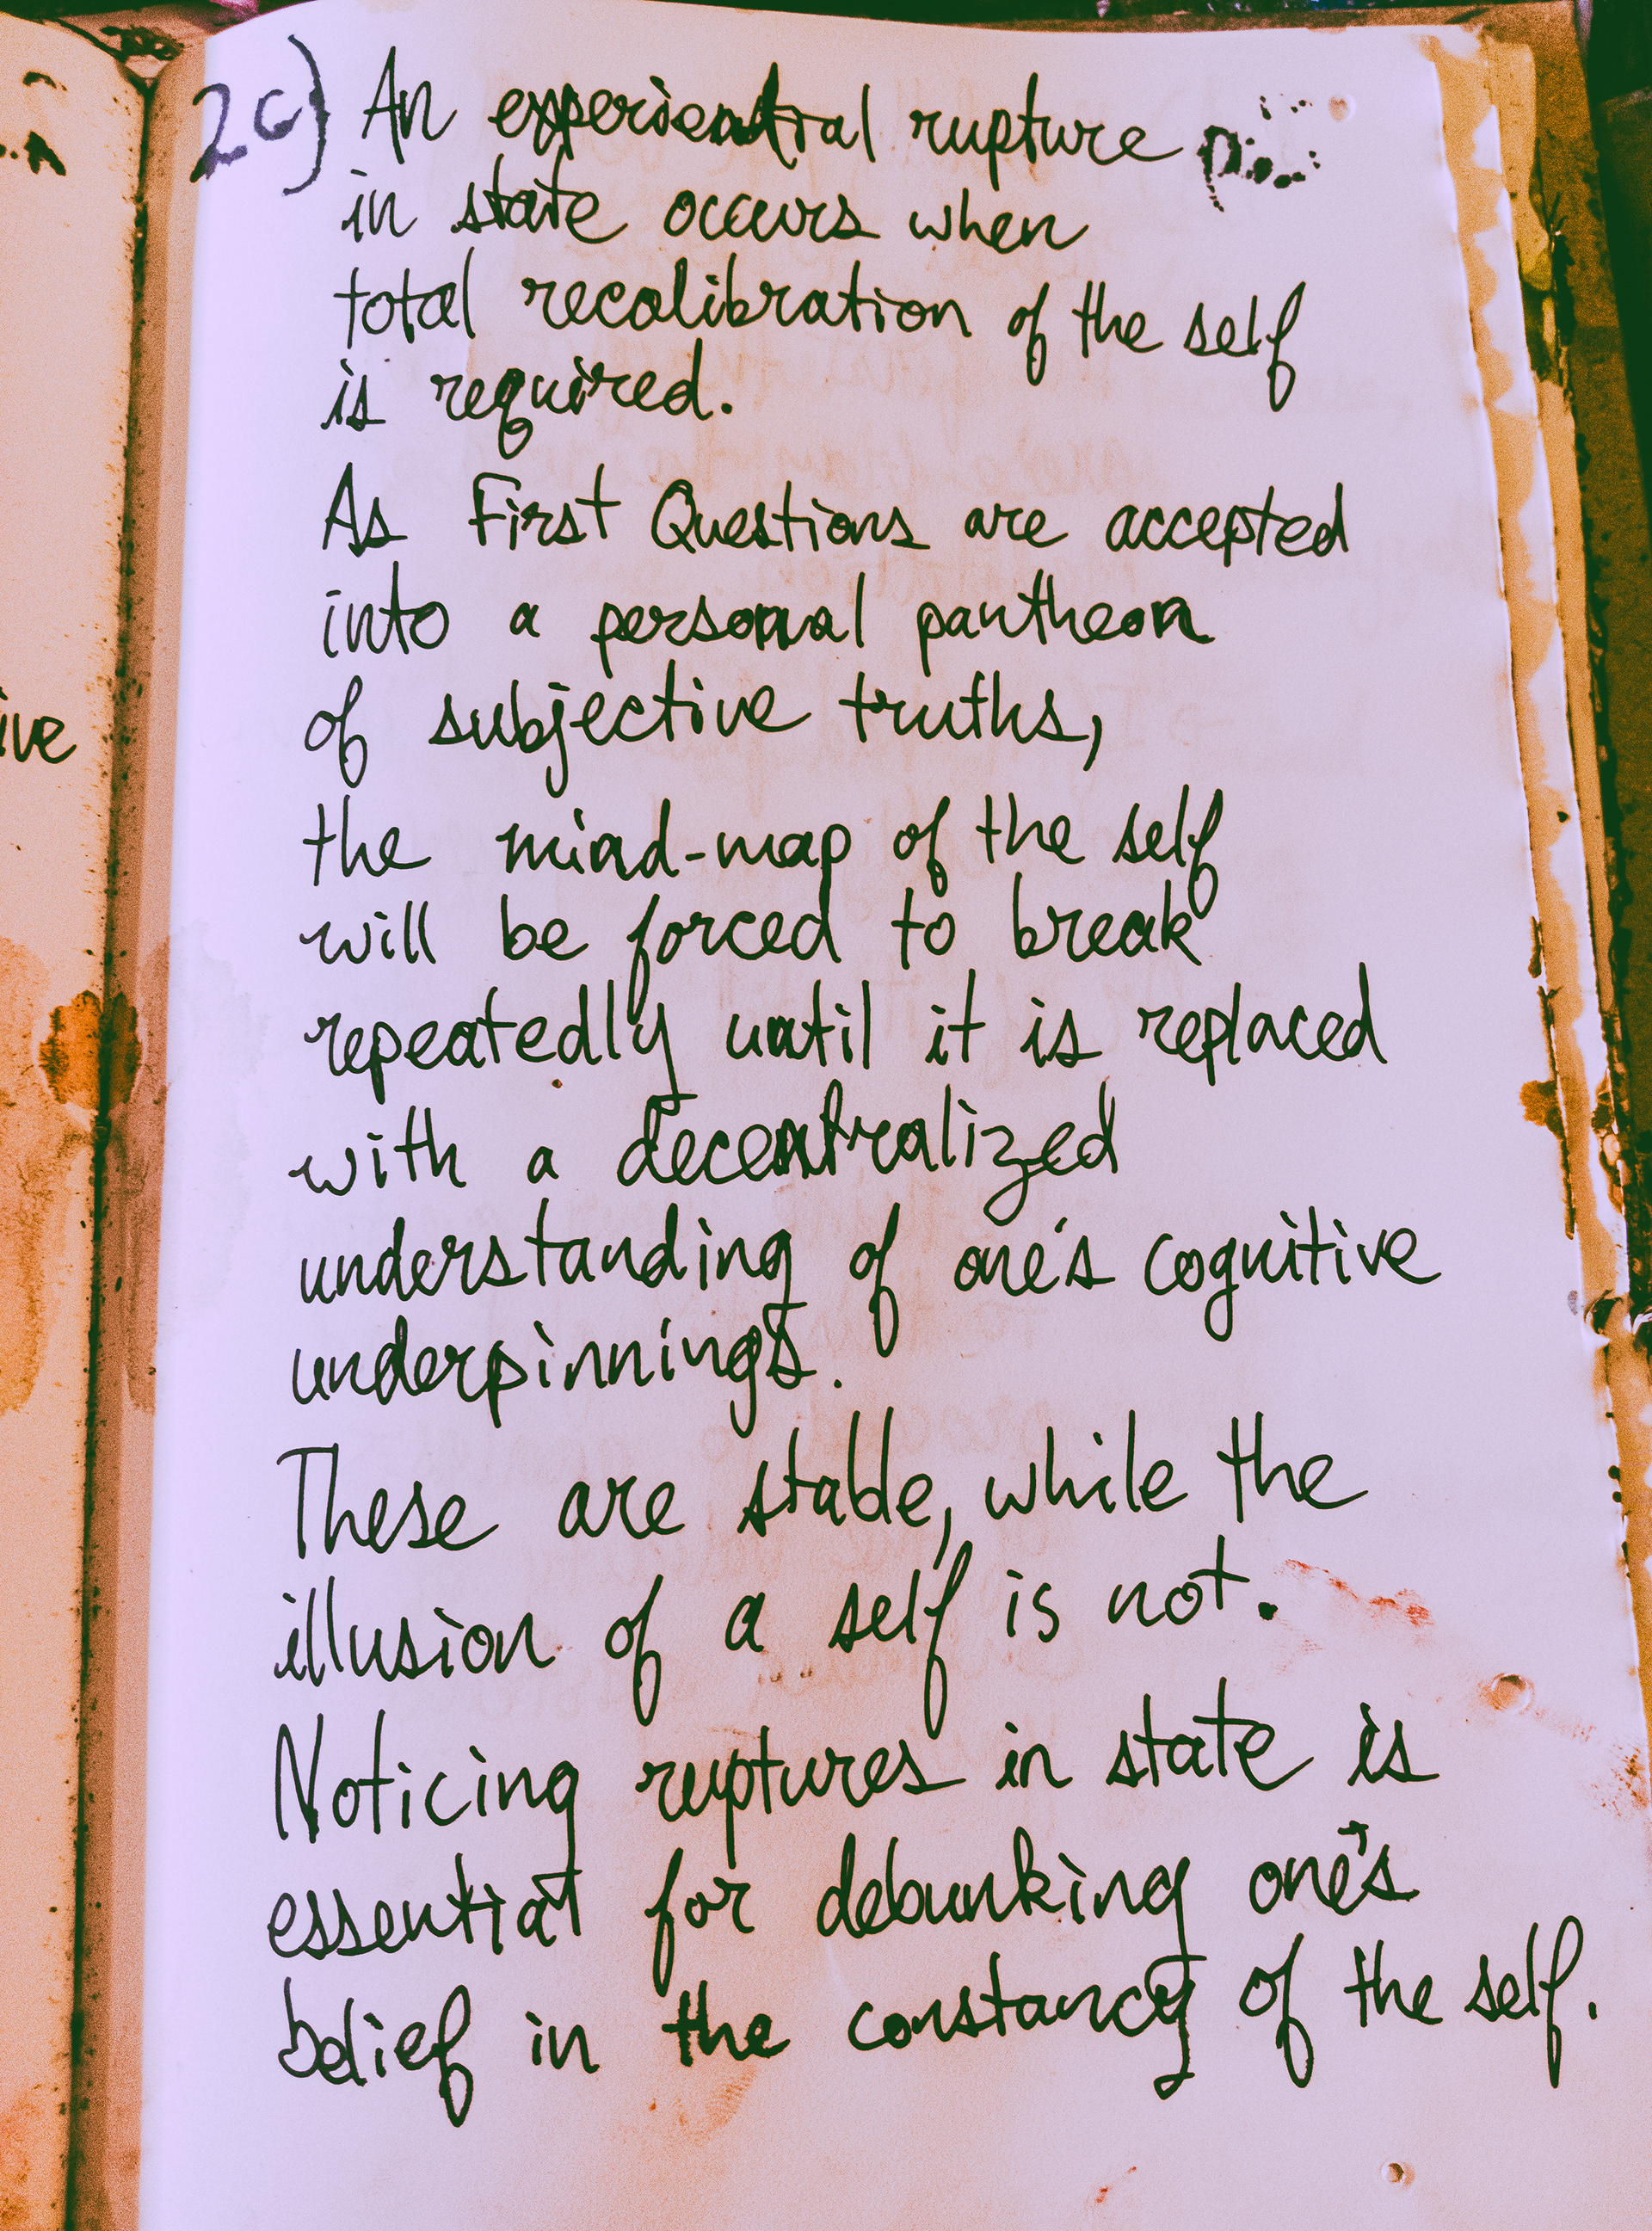 2c) An experiential rupture
in state occurs when
total recalibration of the self
is required.
As First Questions are accepted
into a personal pantheon
of subjective truths,
the mind-map of the self
will be forced to break
repeatedly until it is replaced
with a decentralized
understanding of one's cognitive
underpinnings.
These are stable, while the
illusion of a self is not.
Noticing ruptures in state is
essential for debunking one's
belief in the constancy of the self.
ive